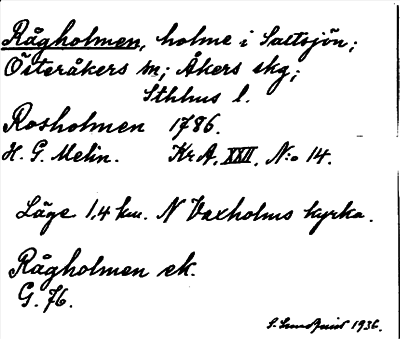 Rågholmen, holme i Saltsjön;
Österåkers sn; Åkers skg;
Sthlms l.
Rosholmen 1786.
H. G. Melin. Kr A, XXII, N:o 14.
Läge 1,4 km. N Vaxholms kyrka.
Rågholmen ek.
G. 76.
S. Lundquist 1936.